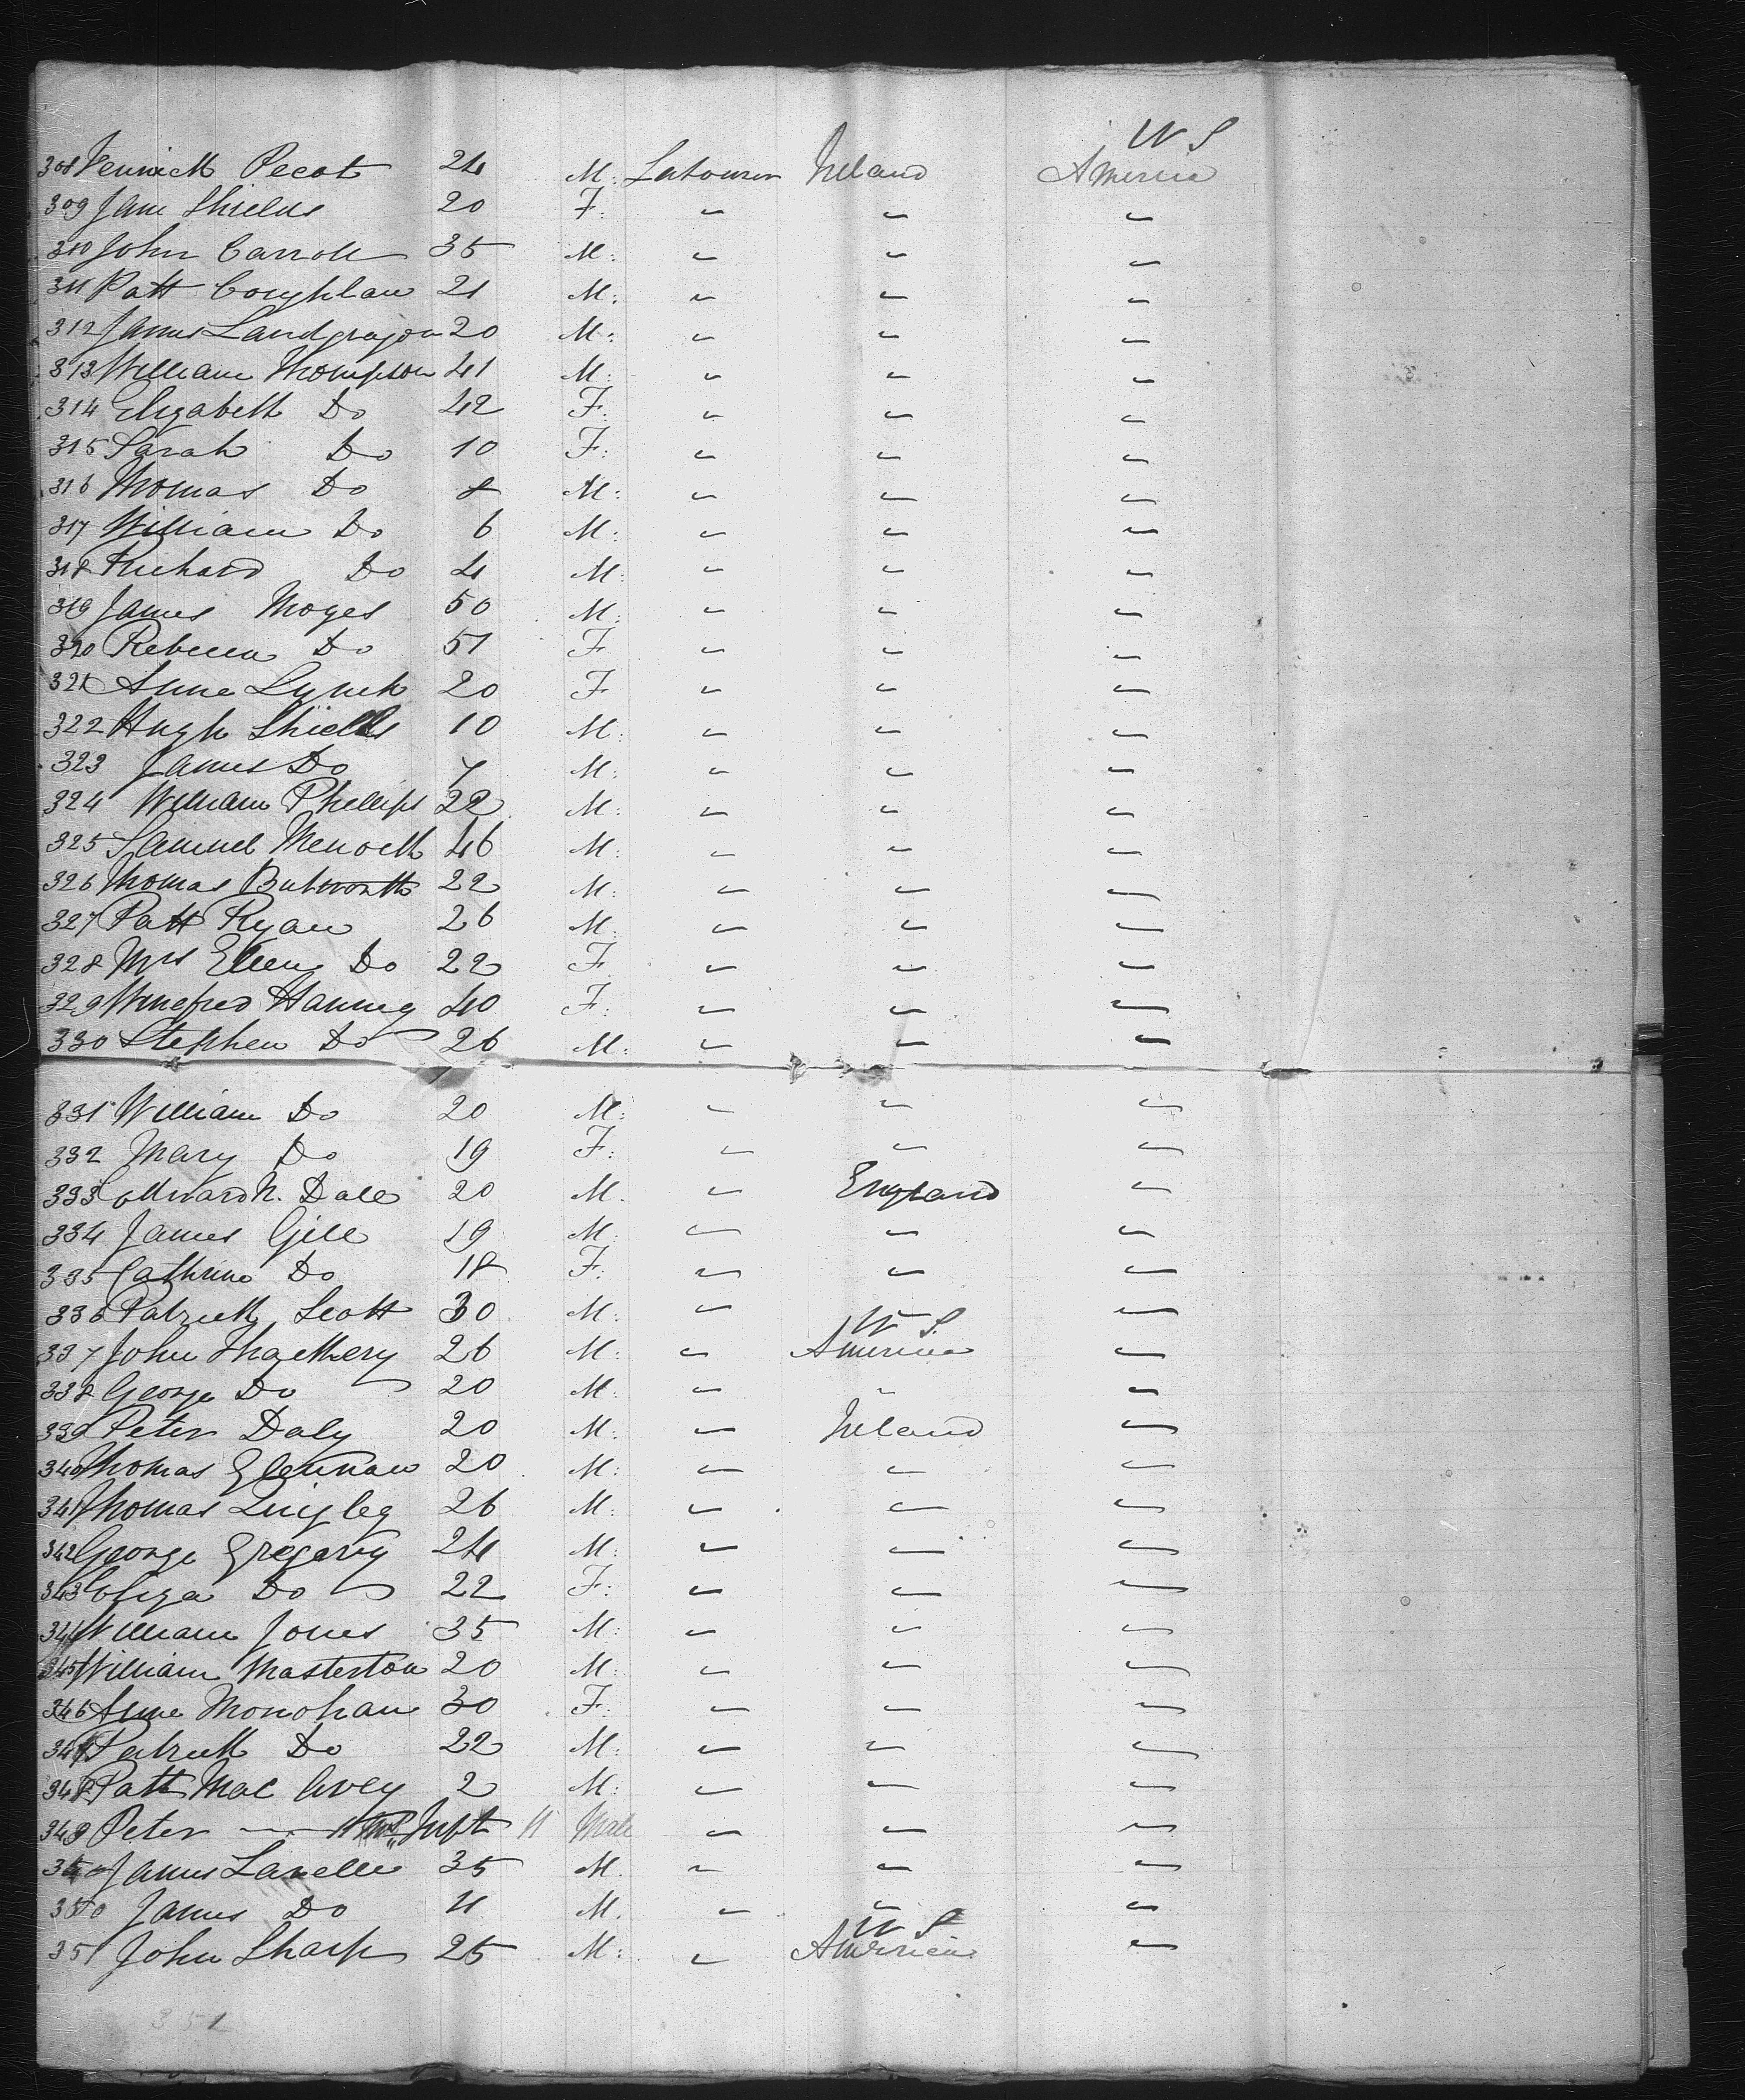 U S
308 Pennick Pecot 24 M: Labourer Ireland America
309 Jane Shields 20 F: " " "
310 John Carroll 35 M: " " "
311 Patt Coughlan 21 M: " " "
312 James 20 M: " " "
313 William Thompson 41 M: " " "
314 Elizabeth Do 42 F: " " "
315 Sarah Do 10 F: " " "
316 Thomas Do 8 M: " " "
317 William Do 6 M: " " "
318 Richard Do 4 M: " " "
319 James Moyes 50 M: " " "
320 Rebecca Do 51 F " " "
321 Anne Lynch 20 F " " "
322 Hugh Shields 10 M: " " "
323 James Do 7 M: " " "
324 William Phillips 22 M: " " "
325 Samuel 46 M: " " "
326 Thomas Butworth 22 M: " " "
327 Patt Ryan 26 M: " " "
328 Mrs Ellen Do 22 F " " "
329 Winefred Hanney 40 F: " " "
330 Stephen Do 26 M: " " "
331 William Do 20 M: " " "
332 Mary Do 19 F: " " "
333 Edward N. Dale 20 M. " England "
334 James Gill 19 M " " "
335 Cathrine Do 18 F: " " "
336 Patrick Scott 30 M: " " "
U S.
337 John 26 M: " America "
338 George Do 20 M: " " "
339 Peter Daly 20 M: " Ireland "
340 Thomas Glennan 20 M: " " "
341 Thomas Quigley 26 M: " " "
342 George Gregory 24 M: " " "
343 Eliza Do 22 F: " " "
344 William Jones 35 M: " " "
345 William Masterton 20 M: " " "
346 Anne Monohan 30 F: " " "
347 Patrick Do 22 M: " " "
348 Patt Mac Avey 2 M: " " "
349 Peter Inft 11 Male " " "
James Lavelle 35 M. " " "
350 James Do 11 M. " " "
U S
351 John Sharp 25 M: " America "
351